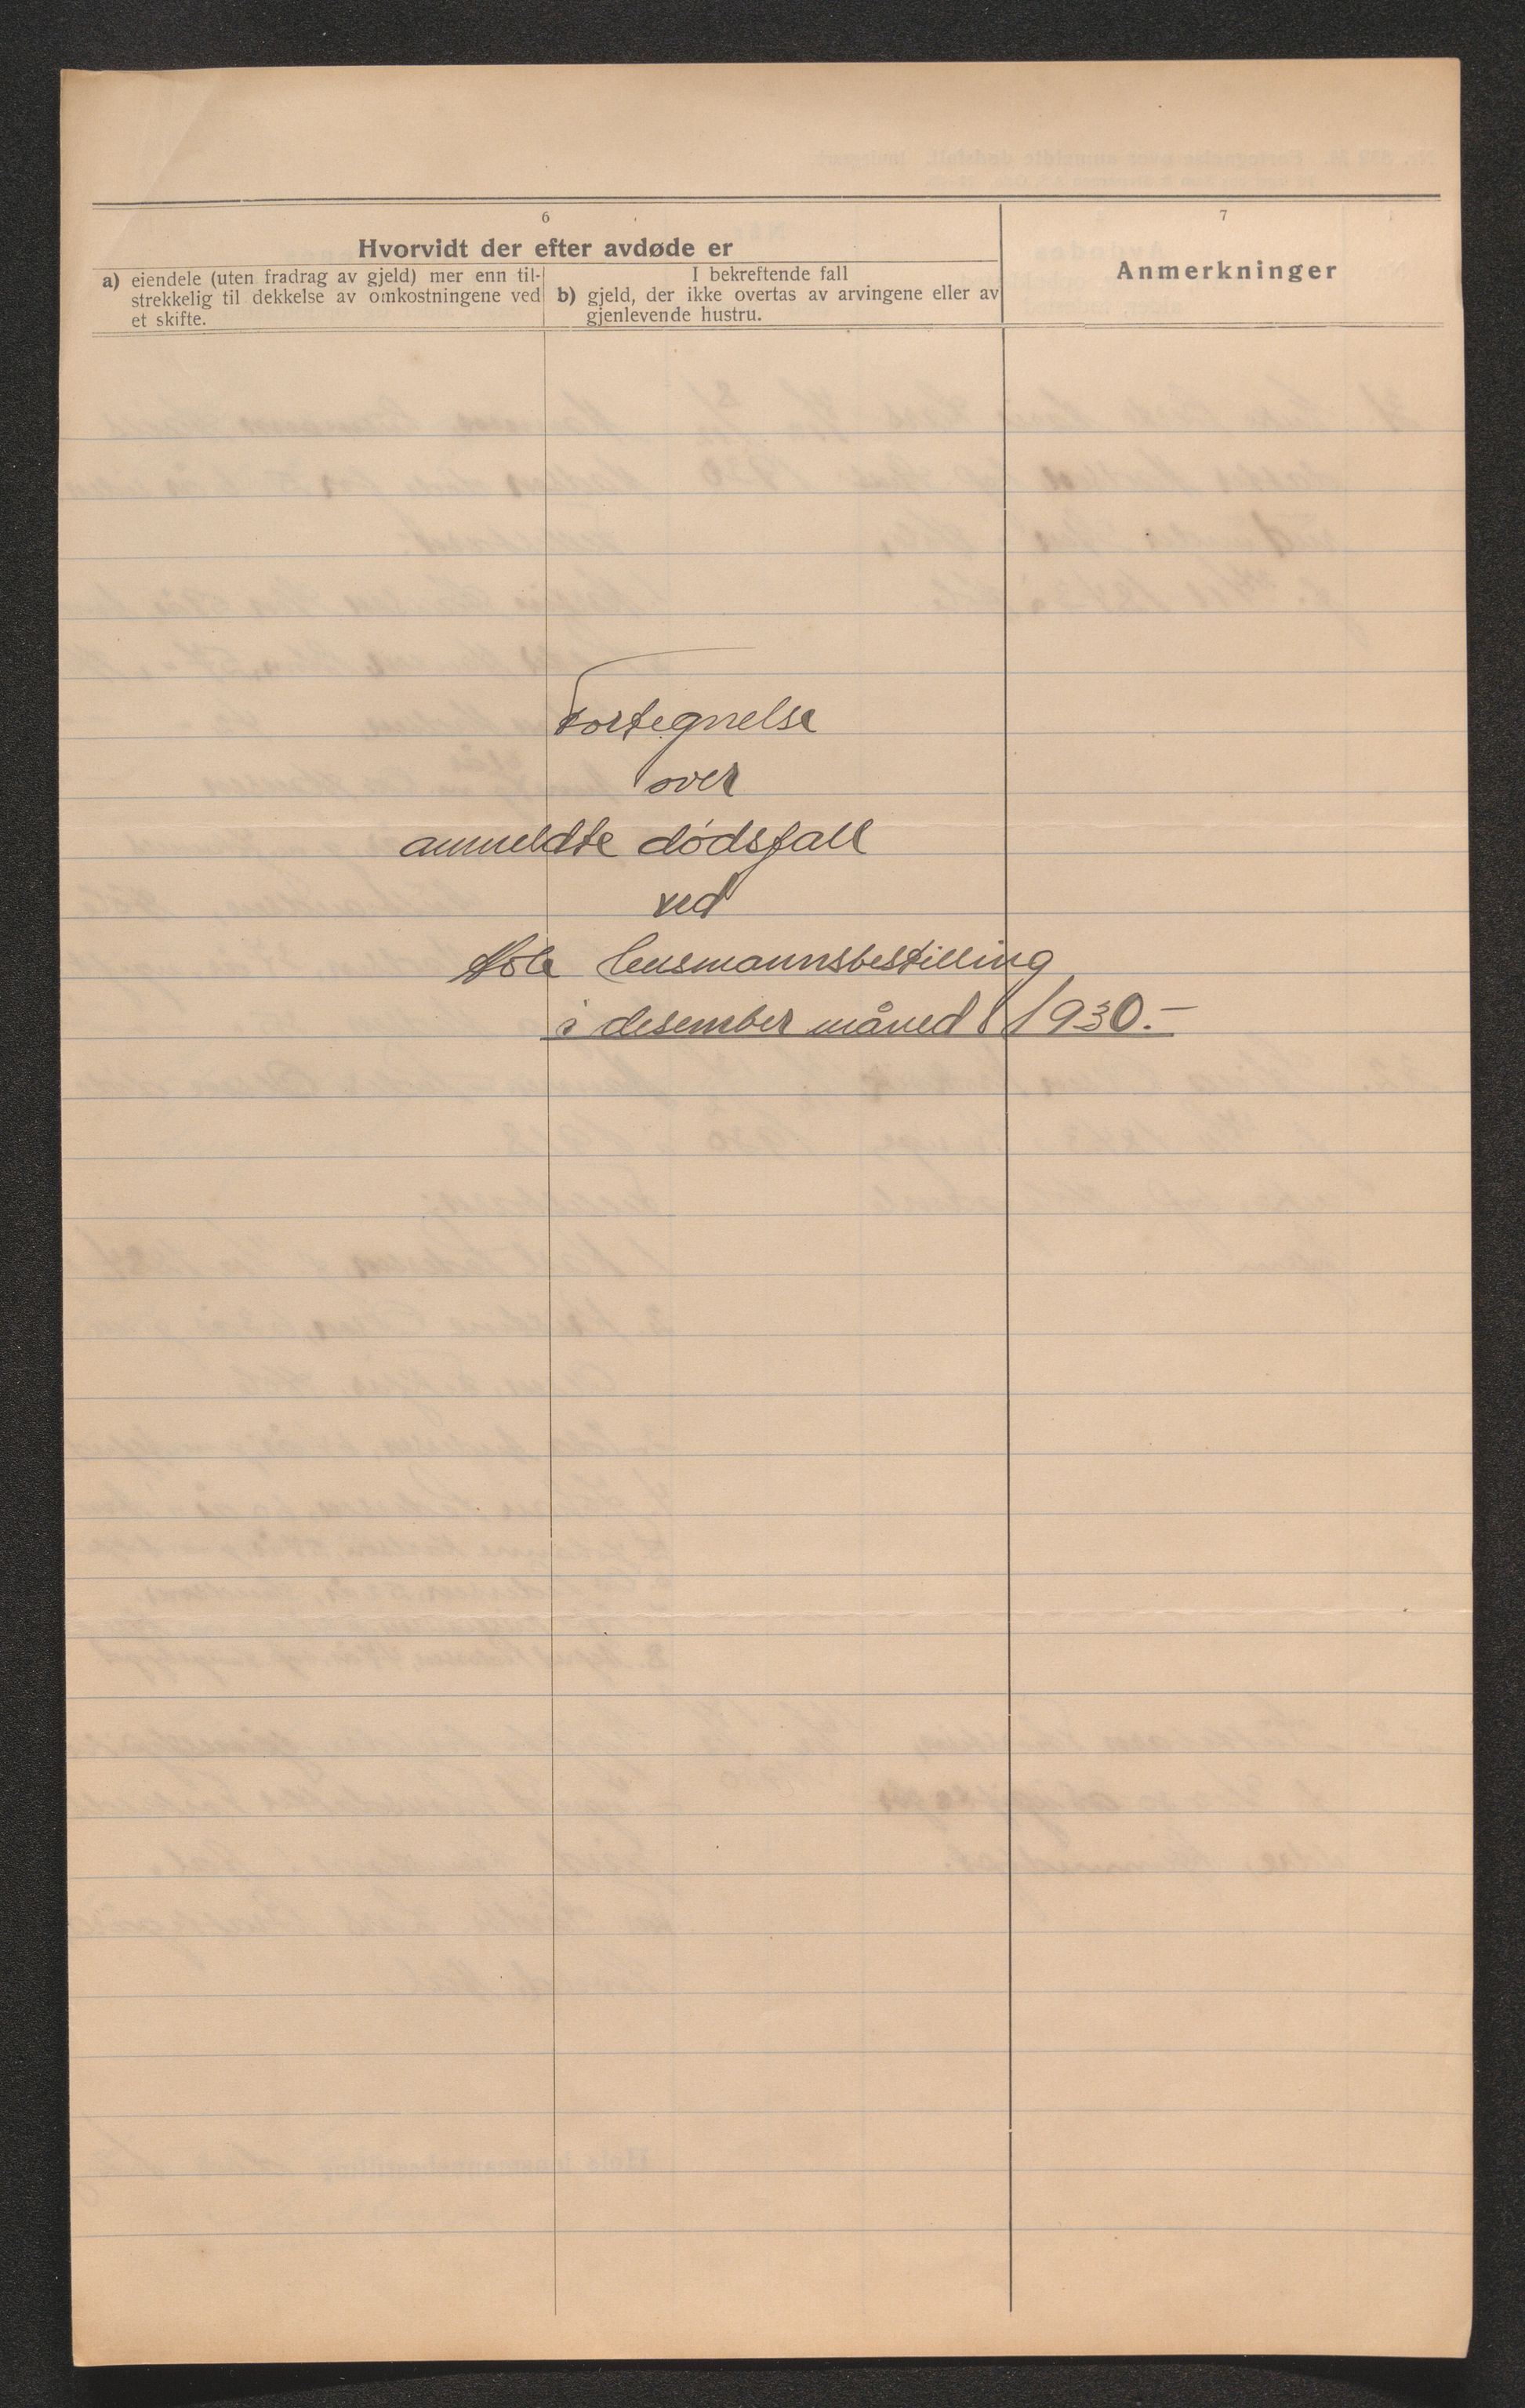 6
Hvorvidt der efter avdøde er
a) eiendele (uten fradrag av gjeld) mer enn til-
strekkelig til dekkelse av omkostningene ved
et skifte.
I bekreftende fall
b) gjeld, der ikke overtas av arvingene eller av
gjenlevende hustru.
7
Anmerkninger
Fortegnelse
over
anmeldte dødsfall
ved
Hole lensmannsbestilling
i desember måned 1930.-